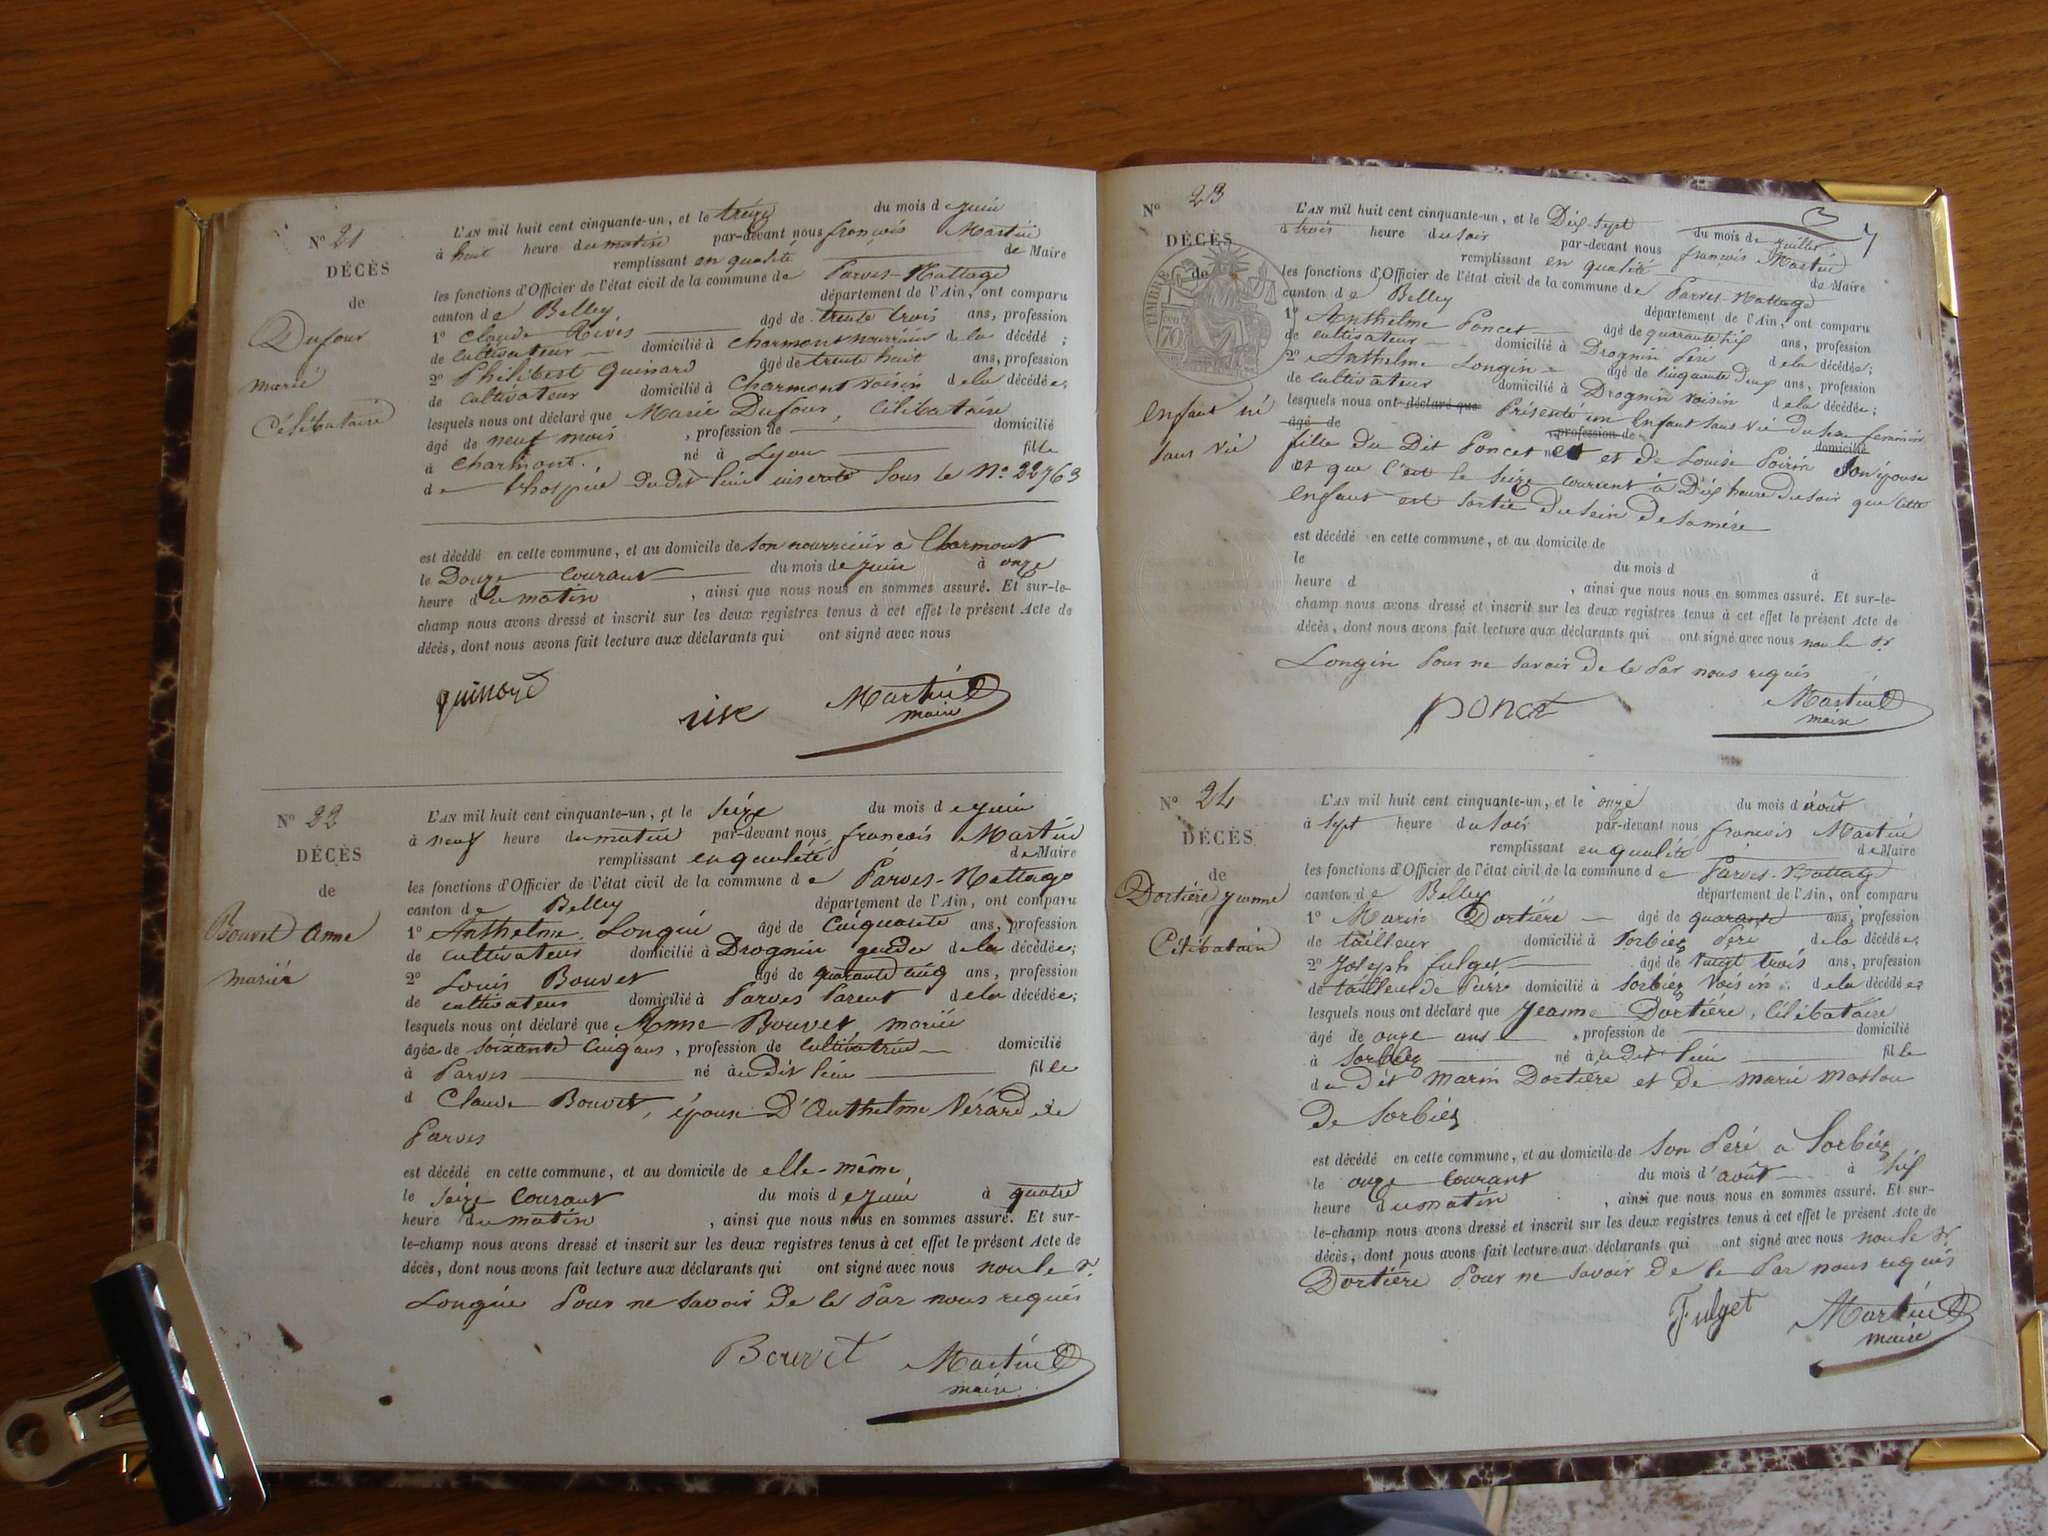 N° 21
DÉCÈS
de
Dufour
marie
Célibataire
L'AN mil huit cent cinquante-un, et le treize du mois de juin
à huit heure du matin par-devant nous françois Martin
remplissant en qualité de Maire
les fonctions d'Officier de l'état civil de la commune de Parves-Nattage
canton de Belley département de l'Ain, ont comparu
1° Claude Rives âgé de trente trois ans, profession
de cultivateur domicilié à Charmont nourricier de la décédé ;
2° Philibert Guinard âgé de trente huit ans, profession
de cultivateur domicilié à Charmont voisin de la décédée;
lesquels nous ont déclaré que Marie Dufour, Célibataire
âgé de neuf mois , profession de domicilié
à Charmont. né à Lyon fille
de l'hospice du dit lieu inscrite sous le N° 22763
est décédé en cette commune, et au domicile de son nourricier a Charmont
le Douze courant du mois de juin à onze
heure du matin , ainsi que nous nous en sommes assuré. Et sur-le-
champ nous avons dressé et inscrit sur les deux registres tenus à cet effet le présent Acte de
décès, dont nous avons fait lecture aux déclarants qui ont signé avec nous
Martin
maire
N° 22
DÉCÈS
de
Bouvet Anne
mariée
L'AN mil huit cent cinquante-un, et le seize du mois de juin
à neuf heure du matin par-devant nous françois Martin
remplissant en qualité de Maire
les fonctions d'Officier de l'état civil de la commune de Parves-Nattage
canton de Belley département de l'Ain, ont comparu
1° Anthelme Longin âgé de Cinquante ans, profession
de cultivateur domicilié à Drognin gendre de la décédée;
2° Louis Bouvet âgé de quarante cinq ans, profession
de cultivateur domicilié à Parves Parent de la décédée;
lesquels nous ont déclaré que Anne Bouvet, mariée
âgée de soixante cinq ans , profession de cultivatrice domicilié
à Parves né au dit lieu fille
d Claude Bouvet, épouse D'Anthelme Vérard de
Parves
est décédé en cette commune, et au domicile de elle-même
le seize courant du mois de juin à quatre
heure du matin , ainsi que nous nous en sommes assuré. Et sur-
le-champ nous avons dressé et inscrit sur les deux registres tenus à cet effet le présent Acte de
décès, dont nous avons fait lecture aux déclarants qui ont signé avec nous non le Sr.
Longin Pour ne savoir de le Par nous requis
Bouvet Martin
maire
N° 23
DÉCÈS
de
TIMBRE
70
enfant né
sans vie
7
L'AN mil huit cent cinquante-un, et le Dix sept du mois de juillet
à trois heure du soir par-devant nous françois Martin
remplissant en qualité de Maire
les fonctions d'Officier de l'état civil de la commune de Parves-Nattage
canton de Belley département de l'Ain, ont comparu
1° Anthelme Poncet âgé de quarante six ans, profession
de cultivateur domicilié à Drognin Père de la décédée;
2° Anthelme Longin âgé de cinquante Deux ans, profession
de cultivateur domicilié à Drognin voisin de la décédée;
lesquels nous ont déclaré que Présenté un Enfant sans vie du sexe feminin
âgé de profession de domicilié
fille du Dit Poncet et de Louise Poirin son épouse
et que c'est le seize courant à Dix heure du soir que cette
enfant est sortie du sein de sa mère
est décédé en cette commune, et au domicile de
le du mois d à
heure d , ainsi que nous nous en sommes assuré. Et sur-le-
champ nous avons dressé et inscrit sur les deux registres tenus à cet effet le présent Acte de
décès, dont nous avons fait lecture aux déclarants qui ont signé avec nous non le Sr.
Longin Pour ne savoir de le Par nous requis
Poncet Martin
maire
N° 24
DÉCÈS
de
Dortière Jeanne
Célibatain
L'AN mil huit cent cinquante-un, et le onze du mois d'août
à sept heure du soir par-devant nous françois Martin
remplissant en qualité de Maire
les fonctions d'Officier de l'état civil de la commune de Parves-Nattage
canton de Belley département de l'Ain, ont comparu
1° Marin Dortière âgé de quarante ans, profession
de tailleur domicilié à Sorbiez Père de la décédée;
2° Joseph fulget âgé de vingt trois ans, profession
de tailleur de Pierre domicilié à Sorbiez Voisin de la décédée
lesquels nous ont déclaré que Jeanne Dortière, Célibataire
âgé de onze ans , profession de domicilié
à Sorbiez né au dit lieu fille
du dit Marin Dortière et De marie
De Sorbiez
est décédé en cette commune, et au domicile de son Père a Sorbiez
le onze courant du mois d'août à six
heure du matin , ainsi que nous nous en sommes assuré. Et sur-
le-champ nous avons dressé et inscrit sur les deux registres tenus à cet effet le présent Acte de
décès, dont nous avons fait lecture aux déclarants qui ont signé avec nous non le Sr.
Dortière Pour ne savoir de le Par nous requis
Fulget Martin
maire